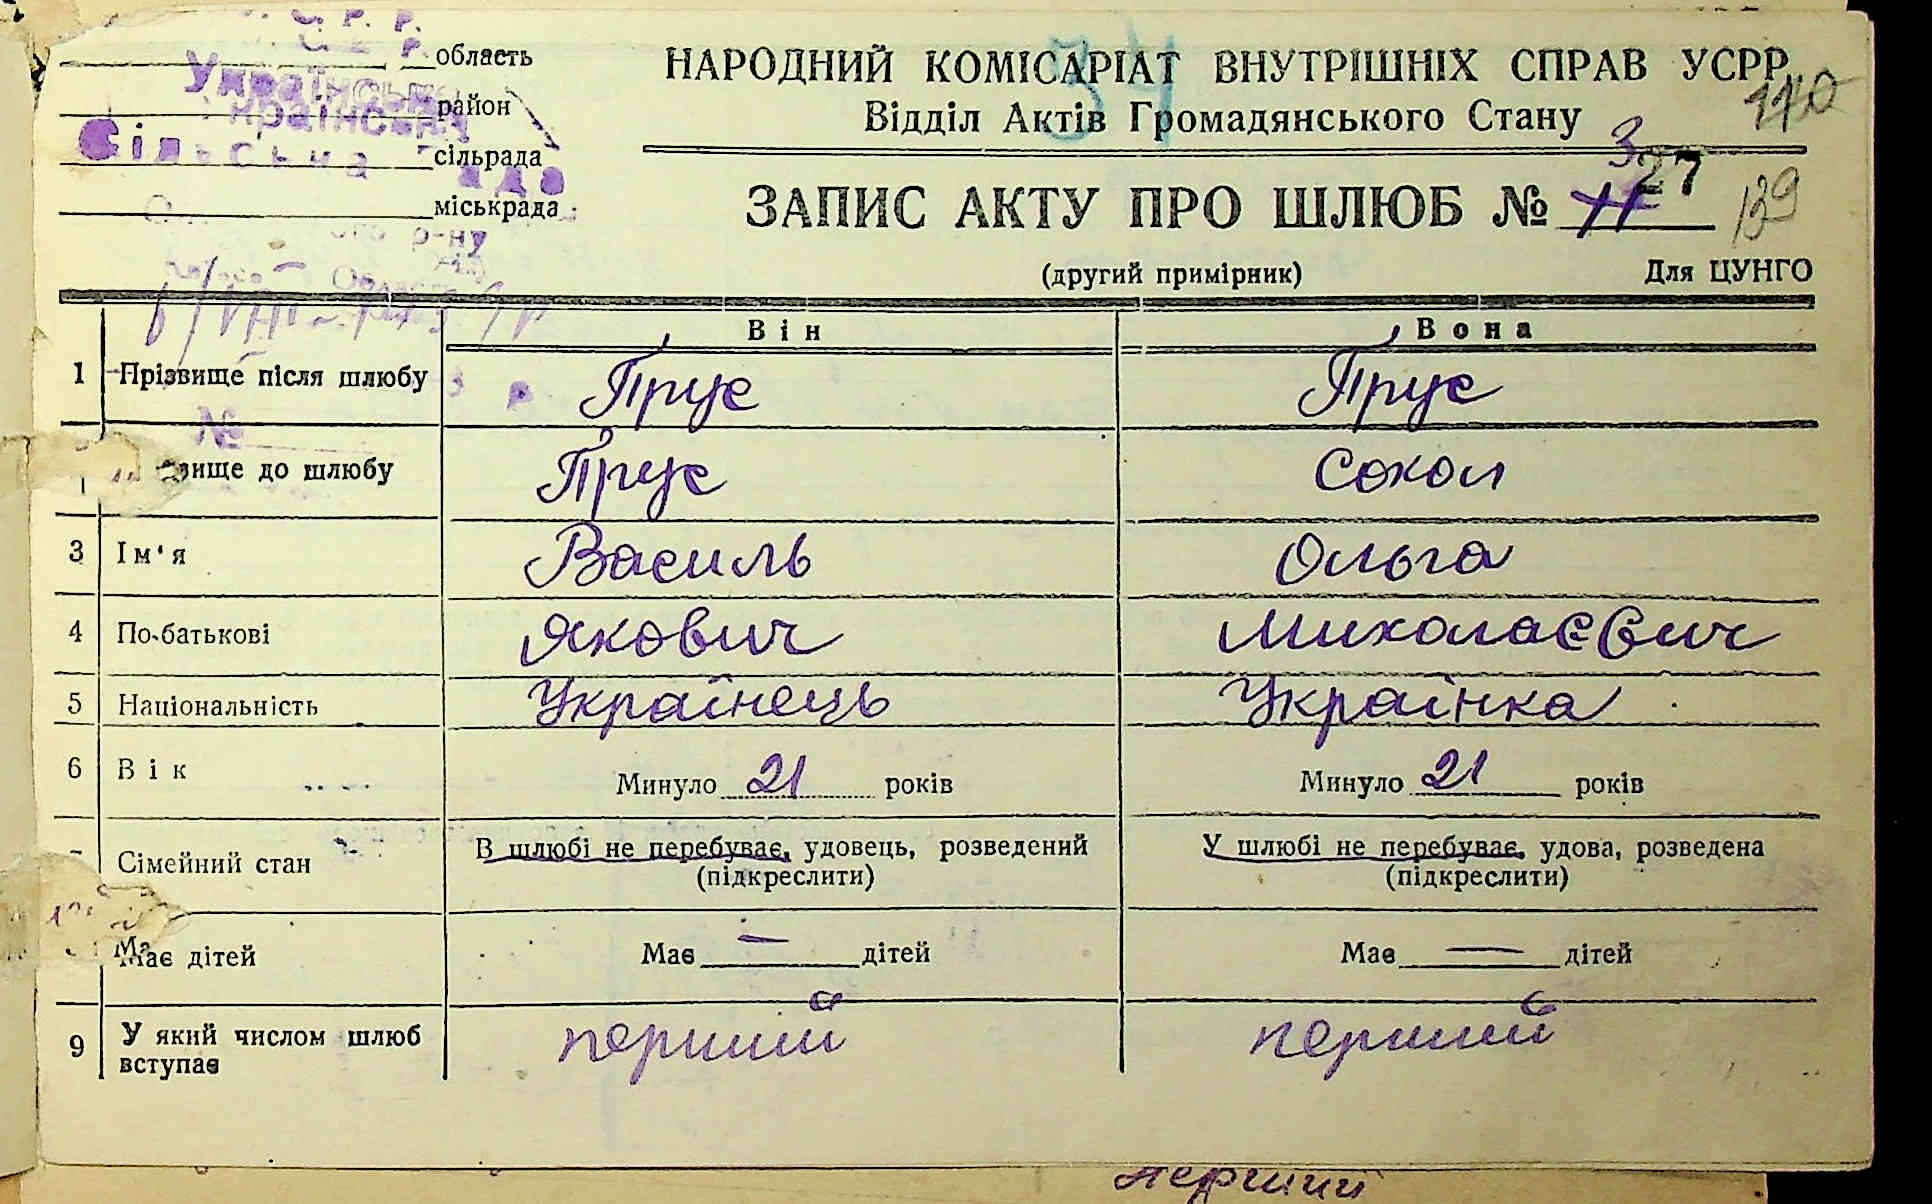 область
район
сільрада
міськрада
Українська
Сільська Рада
НАРОДНИЙ КОМІСАРІАТ ВНУТРІШНІХ СПРАВ УСРР
Відділ Актів Громадянського Стану
34
110
ЗАПИС АКТУ ПРО ШЛЮБ № 11 3 27
139
(другий примірник) Для ЦУНГО
Він Вона
1 Прізвище після шлюбу Прус Прус
№
звище до шлюбу Прус Сокол
3 Ім'я Василь Ольга
4 По-батькові Якович Миколаєвич
5 Національність Українець Українка
6 Вік Минуло 21 років Минуло 21 років
Сімейний стан В шлюбі не перебуває, удовець, розведений У шлюбі не перебуває, удова, розведена
(підкреслити) (підкреслити)
Має дітей Має — дітей Має — дітей
9 У який числом шлюб вступає перший перший
перший